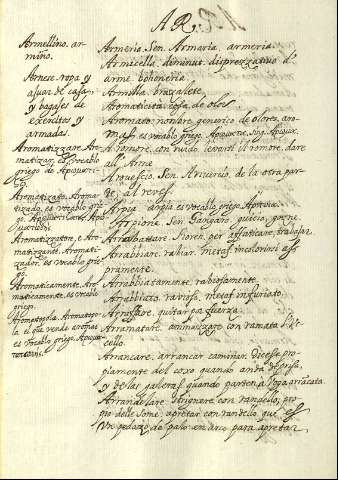 A R.
Armellino. ar-
miño.
Arnese. ropa y
de casa
y bagajes de
exercitos y
armadas.
Aromatizzare. Aro-
matizar. es vocablo
griego
Aromatizato. Aroma-
tizado. es vocablo
griego.
Aromatizzatore. Aro-
matizzante. Aromati-
zador. es vocablo grie-
go.
Aromaticamente. Aro-
maticamente. es vocablo
griego.
Aromatopola. Aromatopo-
la el que vende aromas
es vocablo griego.
Armeria. Sen. Armaria, armeria.
Armicella. diminut. disprezzativo d'
arme
Armilla. brazalete.
Aromaticità. cosa de olor.
Aromato. nombre generico de olores, aro-
mas. es vocablo griego.
A romore. con ruido levarsi il romore, dare
all' Arme
A rovescio. Sen. Ariverso. de la otra par-
te, al reves.
Arpia. arpia es vocablo griego
Arpione. Sen. Gangaro. quicio, gozne.
Arrabattare. Fioren. per affaticare, trabajar.
Arrabbiare. rabiar. metaf. incolorirsi
pramente.
Arrabbiatamente. rabiosamente.
Arrabbiato. ravioso, metaf. infuriato.
Arraffare. quitar por fuerza.
Arramatare. ammazzare con ramata l'Uc-
cello.
Arrancare. arrancar caminar. Dicese pro-
piamente del coxo quando anda deprisa,
y de las galeras quando parten a Voga arrancata.
Arrandellare. strignere con randello, pro-
pio delle some, apretar con randello que es
un pedazo de palo en arco para apretar.